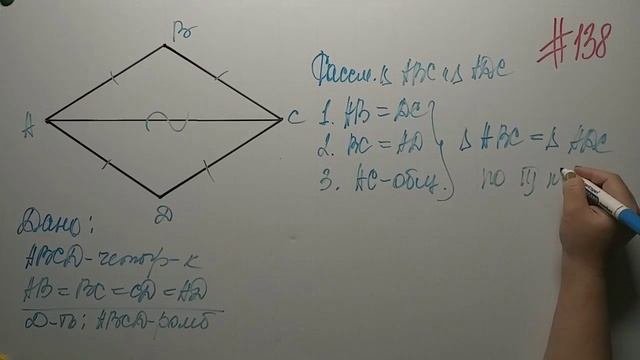 #138
B
A
C
D
Дано:
ABCD-четыр-к
AB = BC = CD = AD
Д-ть: ABCD-ромб
Рассм. Δ ABC и Δ ADC
1. AB = DC
2. BC = AD
3. AC-общ.
Δ ABC = Δ ADC
по III